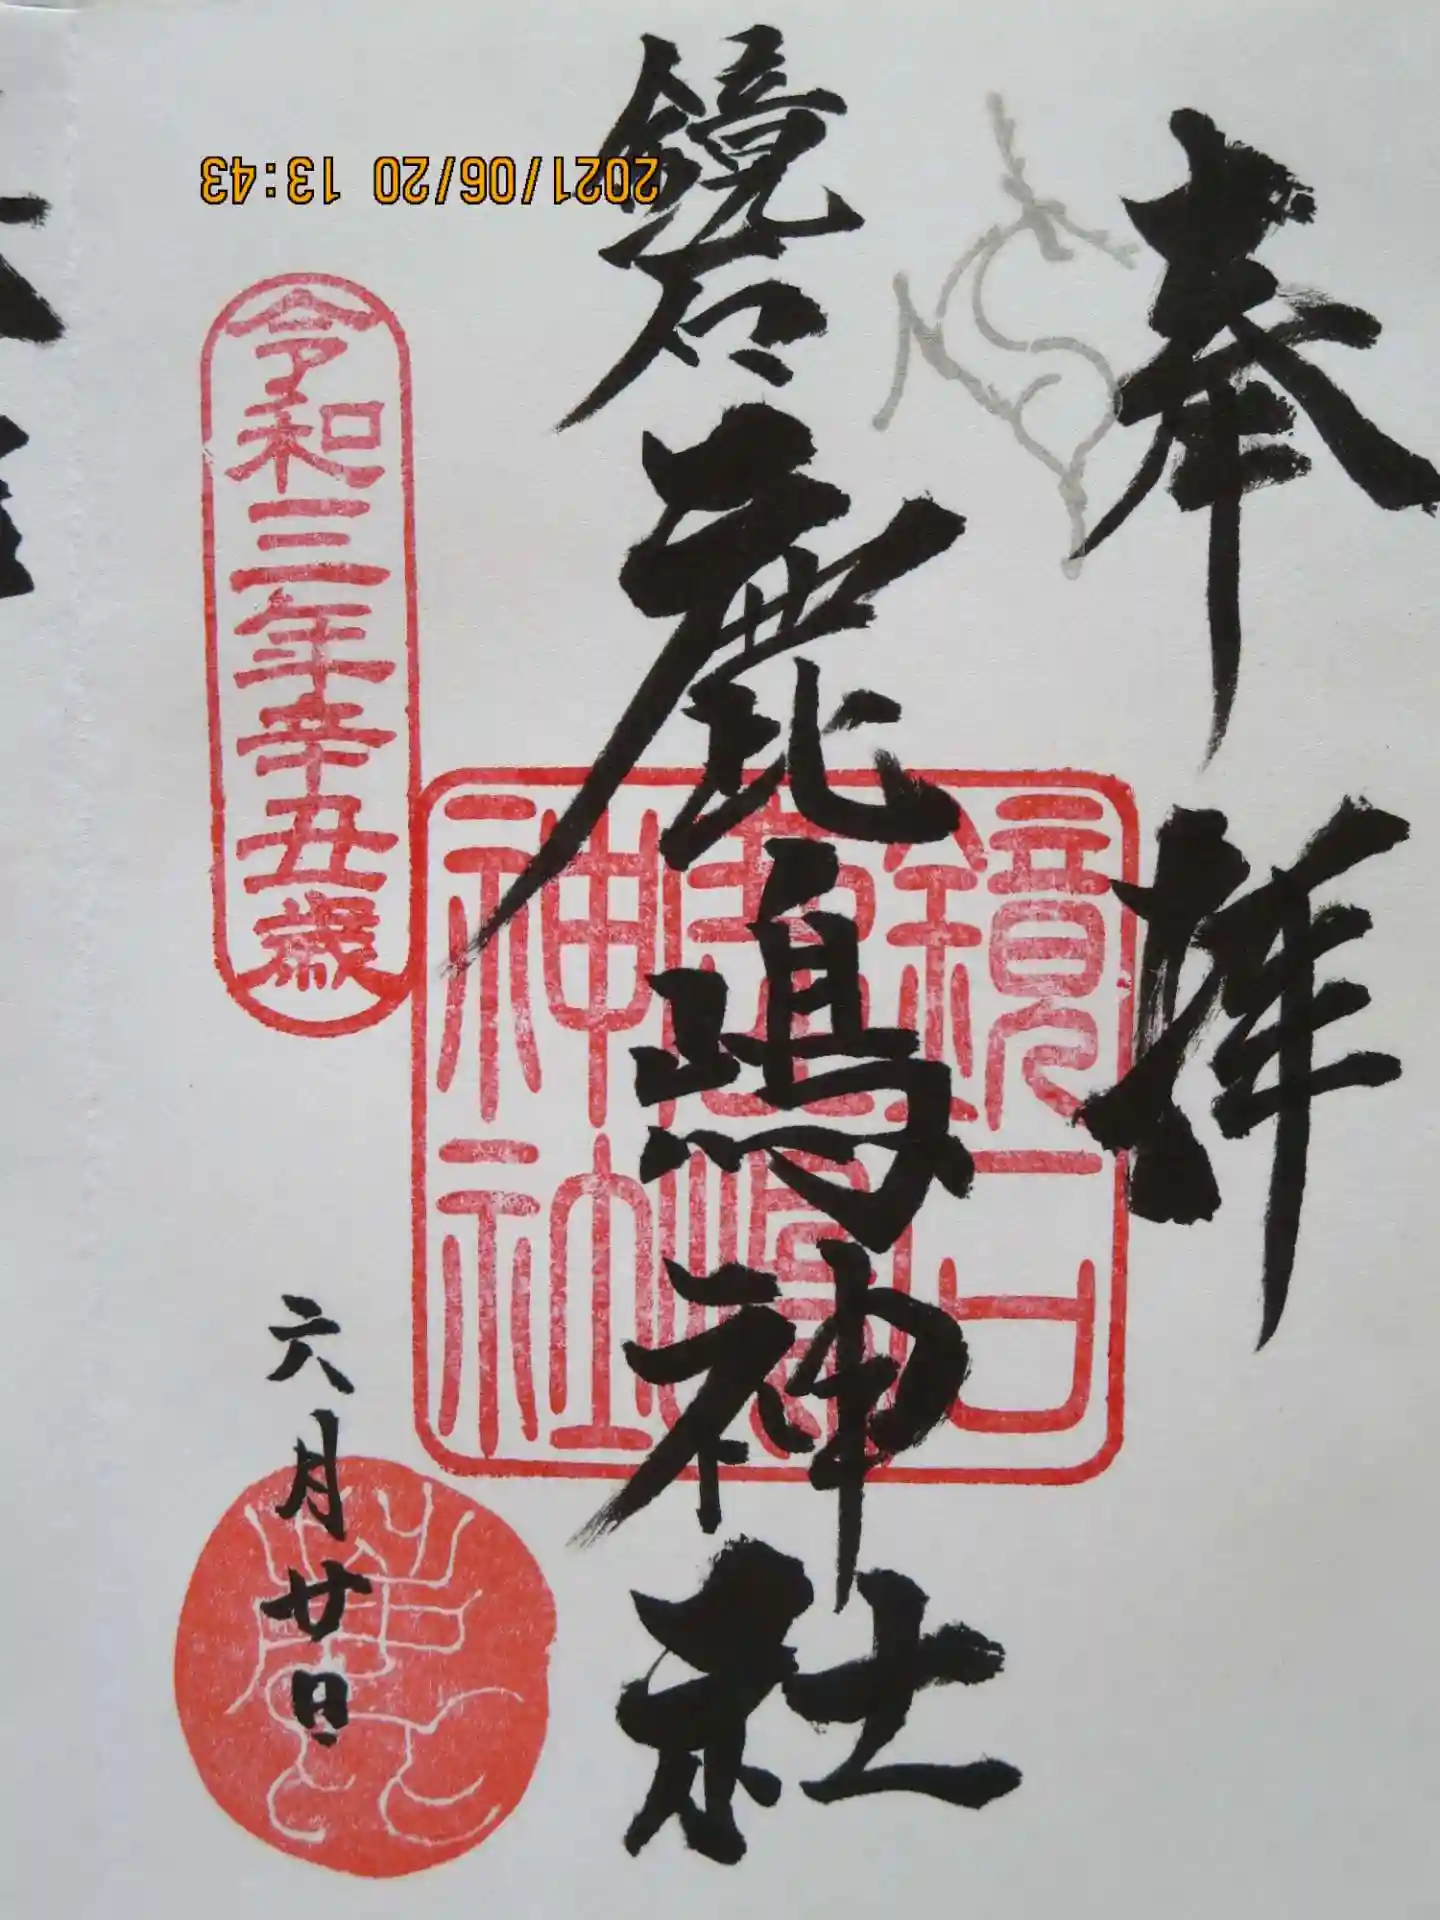 奉拝
鏡石鹿嶋神社
鏡石
鹿嶋
神社
令和三年辛丑歳
六月廿日
2021/06/20 13:43